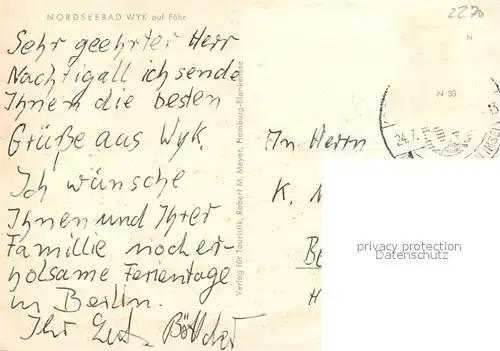 NORDSEEBAD WYK auf Föhr
2270
Sehr geehrter Herr
Nachtigall ich sende
Ihnen die besten
Grüße aus Wyk.
Ich wünsche
Ihnen und Ihrer
Famillie noch er-
holsame Ferientage
in Berlin.
Ihr Böttcher
Verlag für Touristik, Robert M. Meyer, Hamburg-Blankenese
N
N 33
24.7.
An Herrn
K. N
Be
H
privacy protection
Datenschutz